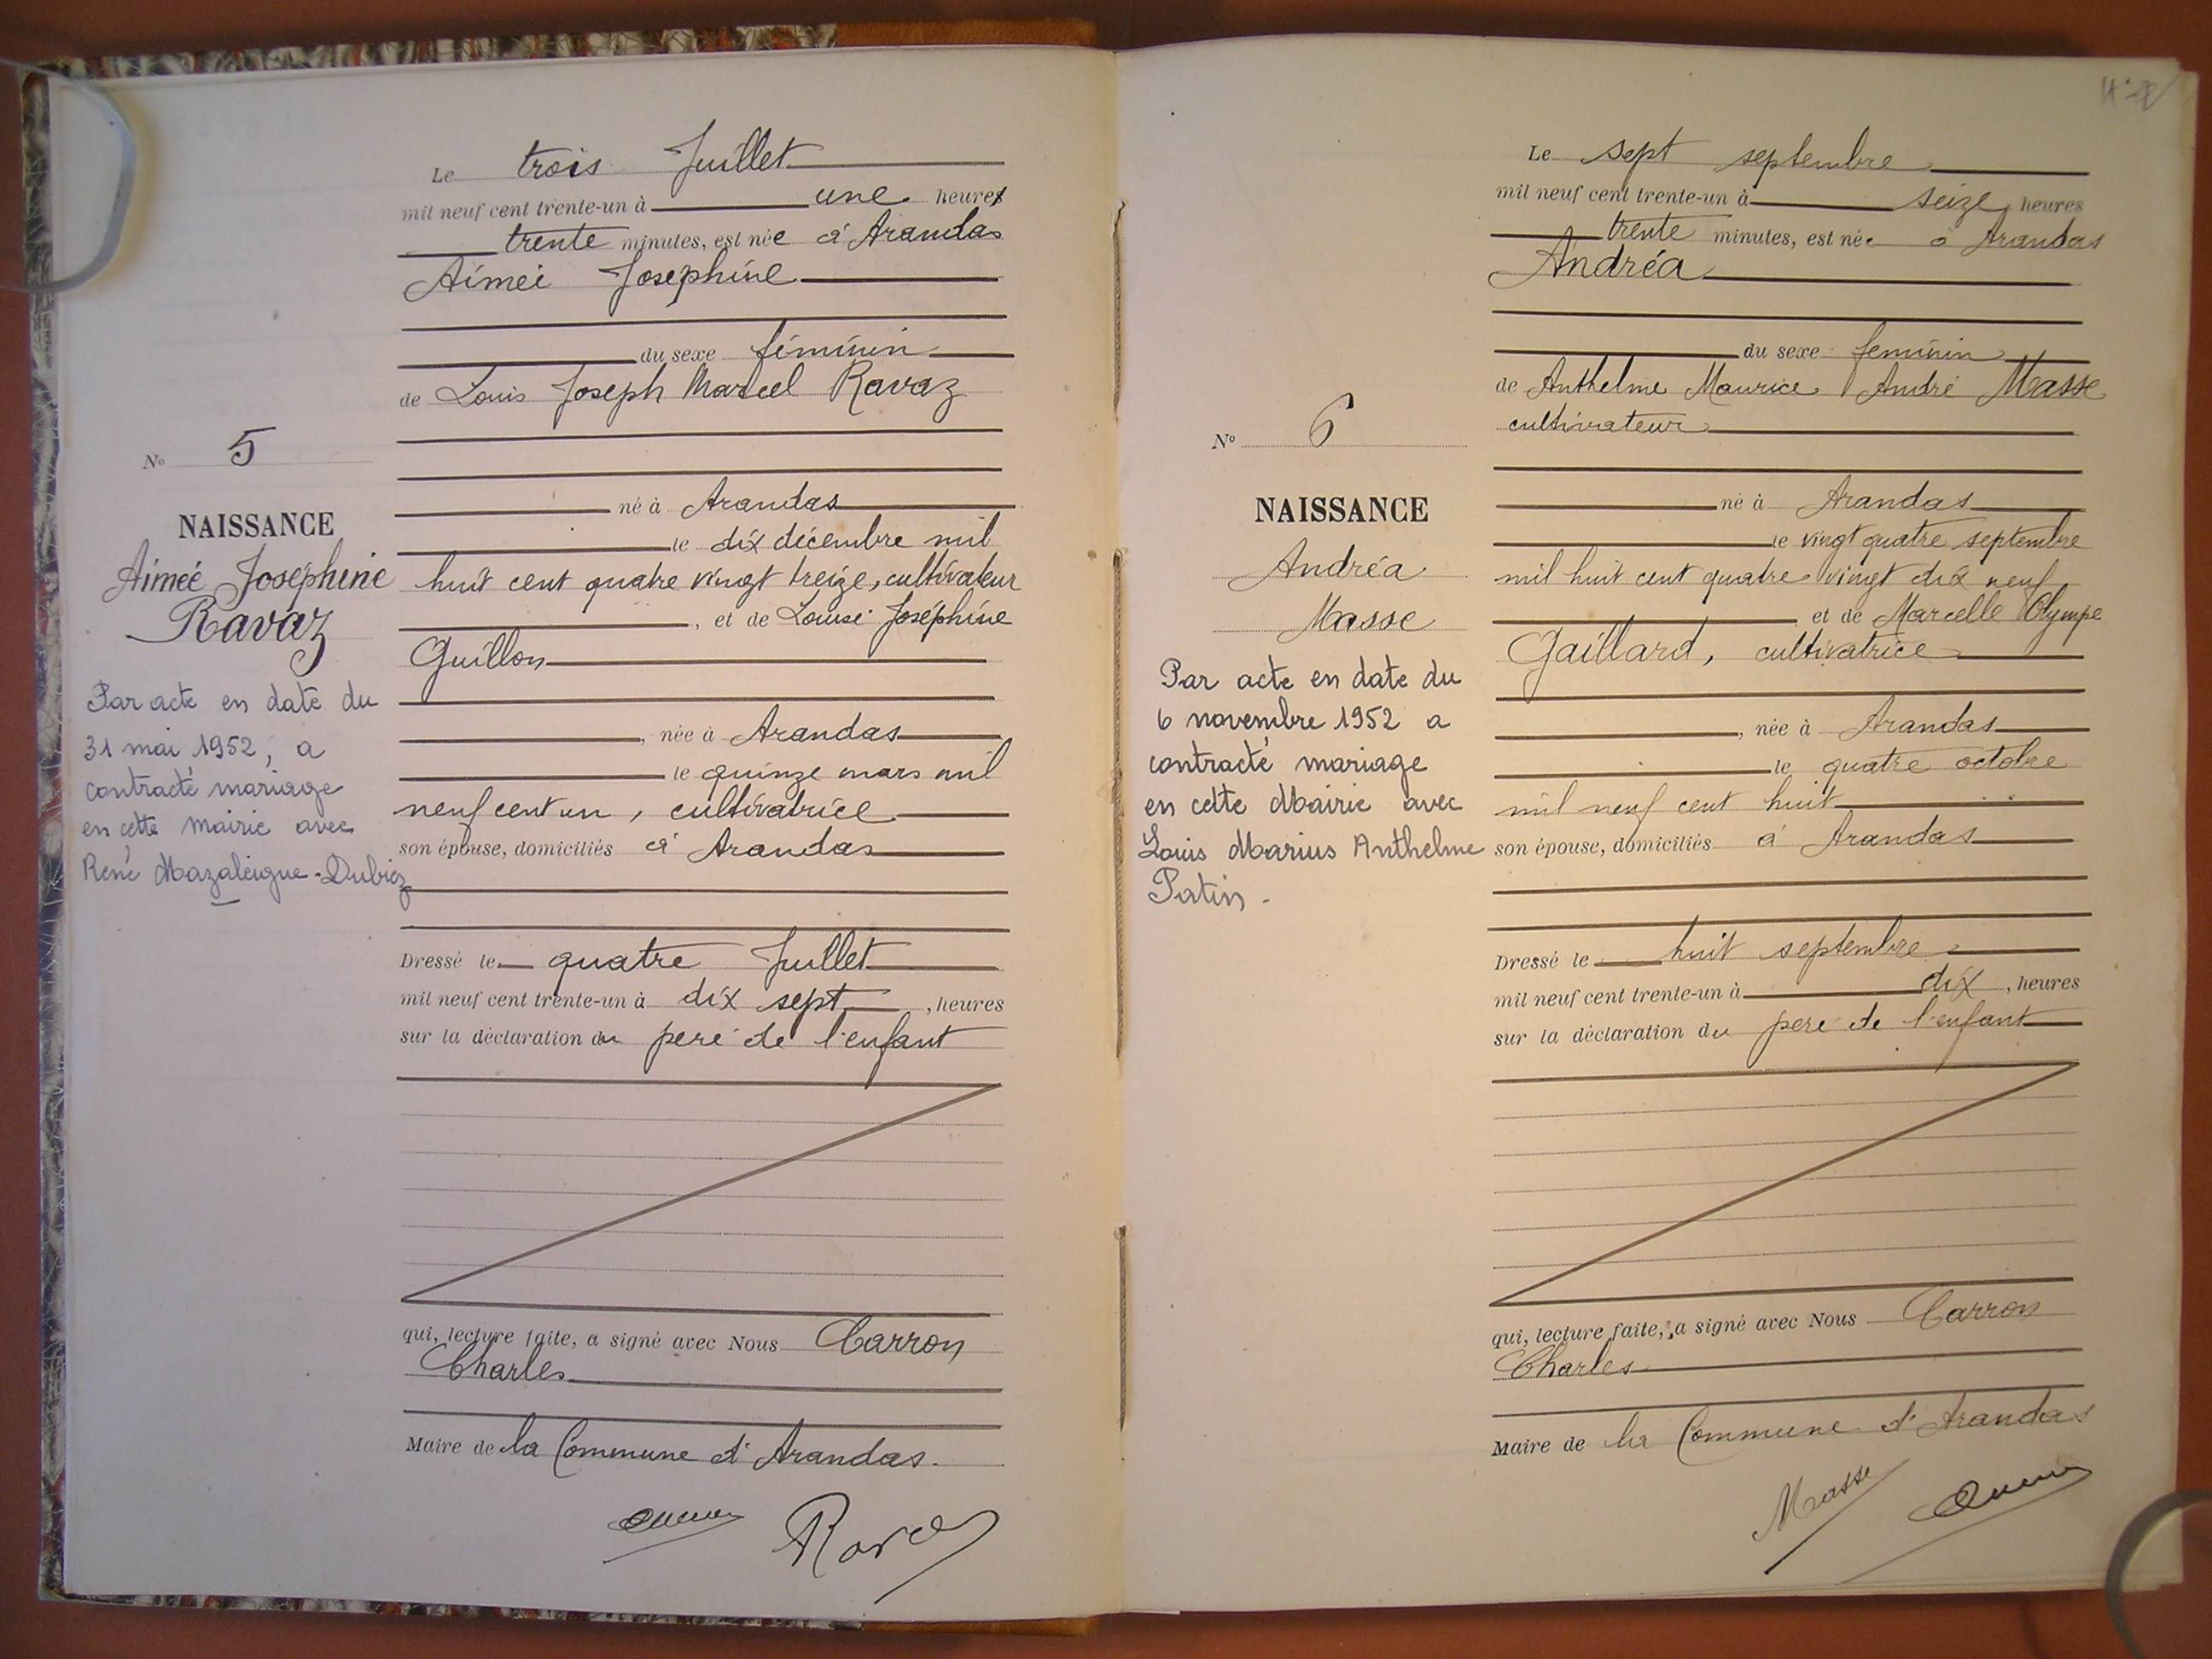 Le trois Juillet
mil neuf cent trente-un à une heures
trente minutes, est née à Arandas
Aimée Joséphine
du sexe féminin
de Louis Joseph Marcel Ravaz
N° 5
né à Arandas
NAISSANCE
le dix décembre mil
Aimée Joséphine
huit cent quatre vingt treize, cultivateur
Ravaz
, et de Louise Joséphine
Guillon
Par acte en date du
31 mai 1952, a
contracté mariage
en cette mairie avec
René Mazaleigue-Dubiez
, née à Arandas
le quinze mars mil
neuf cent un, cultivatrice
son épouse, domiciliés à Arandas
Dressé le quatre Juillet
mil neuf cent trente-un à dix sept, heures
sur la déclaration du père de l'enfant
qui, lecture faite, a signé avec Nous Carron
Charles
Maire de la Commune d'Arandas.
Ravaz
Le sept septembre
mil neuf cent trente-un à seize heures
trente minutes, est née à Arandas
Andréa
du sexe feminin
de Anthelme Maurice André Masse
cultivateur
N° 6
né à Arandas
NAISSANCE
le vingt quatre septembre
Andréa
mil huit cent quatre vingt dix neuf
Masse
et de Marcelle Olympe
Gaillard, cultivatrice
Par acte en date du
6 novembre 1952 a
contracté mariage
en cette Mairie avec
Louis Marius Anthelme
Patin -
, née à Arandas
le quatre octobre
mil neuf cent huit
son épouse, domiciliés à Arandas
Dressé le huit septembre
mil neuf cent trente-un à dix, heures
sur la déclaration du père de l'enfant
qui, lecture faite, a signé avec Nous Carron
Charles
Maire de la Commune d'Arandas
Masse